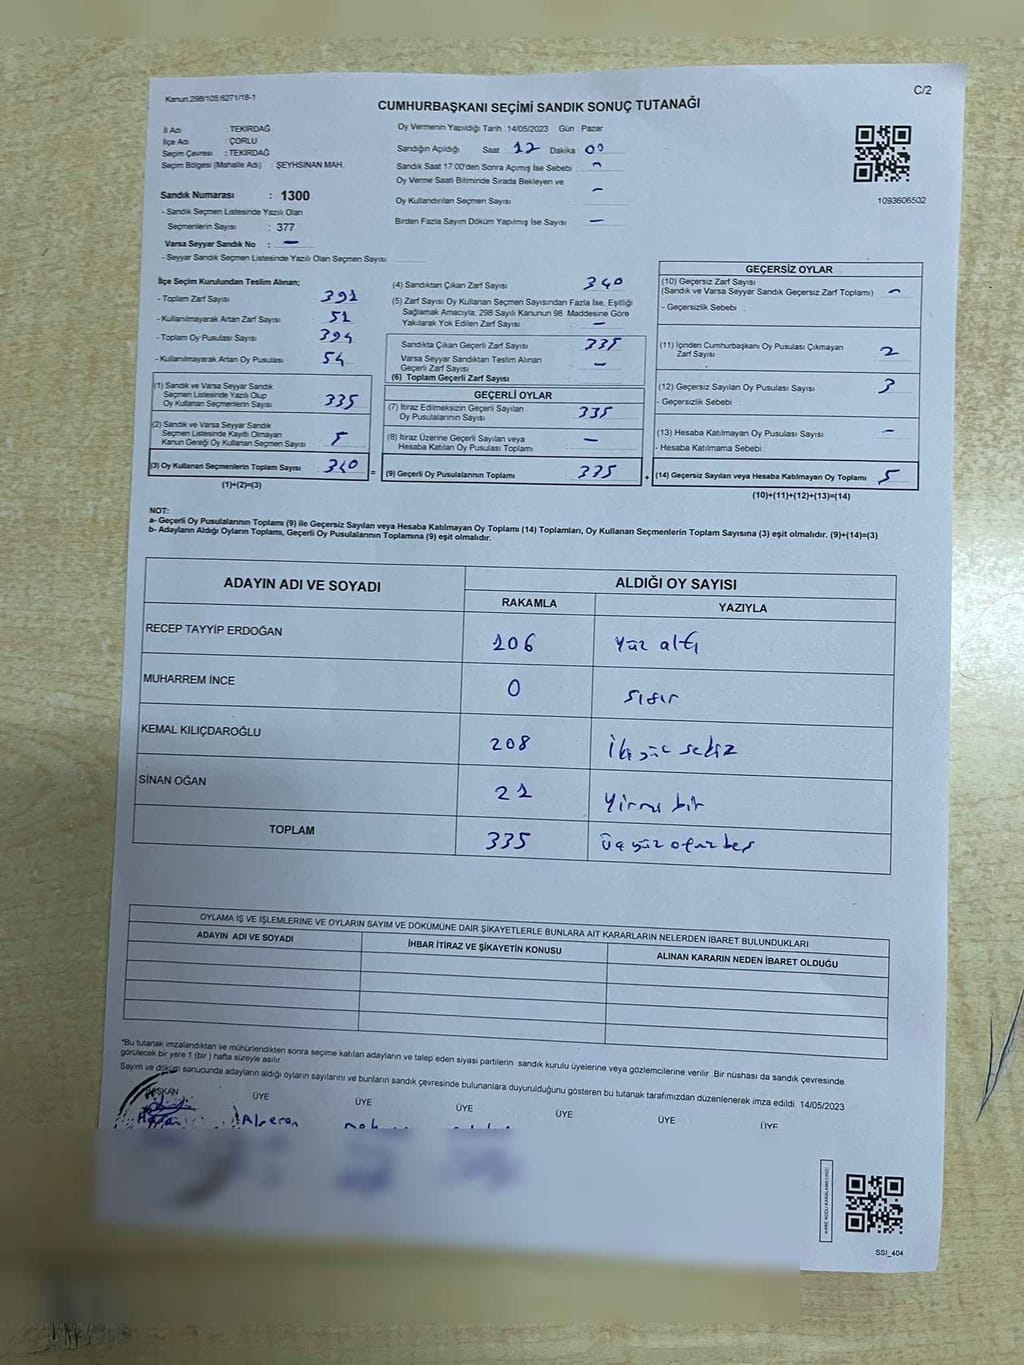 Kanun:298/105,6271/18-1
C/2
CUMHURBAŞKANI SEÇİMİ SANDIK SONUÇ TUTANAĞI
İl Adı : TEKİRDAĞ
İlçe Adı : ÇORLU
Seçim Çevresi : TEKİRDAĞ
Seçim Bölgesi (Mahalle Adı) : ŞEYHSİNAN MAH.
Sandık Numarası : 1300
- Sandık Seçmen Listesinde Yazılı Olan
Seçmenlerin Sayısı : 377
Varsa Seyyar Sandık No : —
- Seyyar Sandık Seçmen Listesinde Yazılı Olan Seçmen Sayısı:
Oy Vermenin Yapıldığı Tarih :14/05/2023 Gün : Pazar
Sandığın Açıldığı Saat 17 Dakika 00
Sandık Saat 17:00'den Sonra Açımış İse Sebebi : —
Oy Verme Saati Bitiminde Sırada Bekleyen ve
Oy Kullandırılan Seçmen Sayısı : —
Birden Fazla Sayım Döküm Yapılmış İse Sayısı : —
1093606502
İlçe Seçim Kurulundan Teslim Alınan;
- Toplam Zarf Sayısı : 391
- Kullanılmayarak Artan Zarf Sayısı : 51
- Toplam Oy Pusulası Sayısı : 394
- Kullanılmayarak Artan Oy Pusulası : 54
(1) Sandık ve Varsa Seyyar Sandık
Seçmen Listesinde Yazılı Olup
Oy Kullanan Seçmenlerin Sayısı : 335
(2) Sandık ve Varsa Seyyar Sandık
Seçmen Listesinde Kayıtlı Olmayan
Kanun Gereği Oy Kullanan Seçmen Sayısı : 5
(3) Oy Kullanan Seçmenlerin Toplam Sayısı : 340
(1)+(2)=(3)
(4) Sandıktan Çıkan Zarf Sayısı : 340
(5) Zarf Sayısı Oy Kullanan Seçmen Sayısından Fazla İse, Eşitliği
Sağlamak Amacıyla; 298 Sayılı Kanunun 98. Maddesine Göre
Yakılarak Yok Edilen Zarf Sayısı : —
Sandıkta Çıkan Geçerli Zarf Sayısı : 335
Varsa Seyyar Sandıktan Teslim Alınan
Geçerli Zarf Sayısı : —
(6) Toplam Geçerli Zarf Sayısı :
GEÇERLİ OYLAR
(7) İtiraz Edilmeksizin Geçerli Sayılan
Oy Pusulalarının Sayısı : 335
(8) İtiraz Üzerine Geçerli Sayılan veya
Hesaba Katılan Oy Pusulası Toplamı : —
= (9) Geçerli Oy Pusulalarının Toplamı : 335
GEÇERSİZ OYLAR
(10) Geçersiz Zarf Sayısı
(Sandık ve Varsa Seyyar Sandık Geçersiz Zarf Toplamı) : —
- Geçersizlik Sebebi :
(11) İçinden Cumhurbaşkanı Oy Pusulası Çıkmayan
Zarf Sayısı : 2
(12) Geçersiz Sayılan Oy Pusulası Sayısı : 3
- Geçersizlik Sebebi :
(13) Hesaba Katılmayan Oy Pusulası Sayısı : —
- Hesaba Katılmama Sebebi :
+ (14) Geçersiz Sayılan veya Hesaba Katılmayan Oy Toplamı : 5
(10)+(11)+(12)+(13)=(14)
NOT:
a- Geçerli Oy Pusulalarının Toplamı (9) ile Geçersiz Sayılan veya Hesaba Katılmayan Oy Toplamı (14) Toplamları, Oy Kullanan Seçmenlerin Toplam Sayısına (3) eşit olmalıdır. (9)+(14)=(3)
b- Adayların Aldığı Oyların Toplamı, Geçerli Oy Pusulalarının Toplamına (9) eşit olmalıdır.
ADAYIN ADI VE SOYADI ALDIĞI OY SAYISI
RAKAMLA YAZIYLA
RECEP TAYYİP ERDOĞAN 106 yüz altı
MUHARREM İNCE 0 sıfır
KEMAL KILIÇDAROĞLU 208 iki yüz sekiz
SİNAN OĞAN 21 yirmi bir
TOPLAM 335 üç yüz otuz beş
OYLAMA İŞ VE İŞLEMLERİNE VE OYLARIN SAYIM VE DÖKÜMÜNE DAİR ŞİKAYETLERLE BUNLARA AİT KARARLARIN NELERDEN İBARET BULUNDUKLARI
ADAYIN ADI VE SOYADI İHBAR İTİRAZ VE ŞİKAYETİN KONUSU ALINAN KARARIN NEDEN İBARET OLDUĞU
*Bu tutanak imzalandıktan ve mühürlendikten sonra seçime katılan adayların ve talep eden siyasi partilerin sandık kurulu üyelerine veya gözlemcilerine verilir. Bir nüshası da sandık çevresinde
görülecek bir yere 1 (bir ) hafta süreyle asılır.
Sayım ve döküm sonucunda adayların aldığı oyların sayılarını ve bunların sandık çevresinde bulunanlara duyurulduğunu gösteren bu tutanak tarafımızdan düzenlenerek imza edildi. 14/05/2023
BAŞKAN ÜYE ÜYE ÜYE ÜYE ÜYE ÜYE
Alperen
SSİ_404